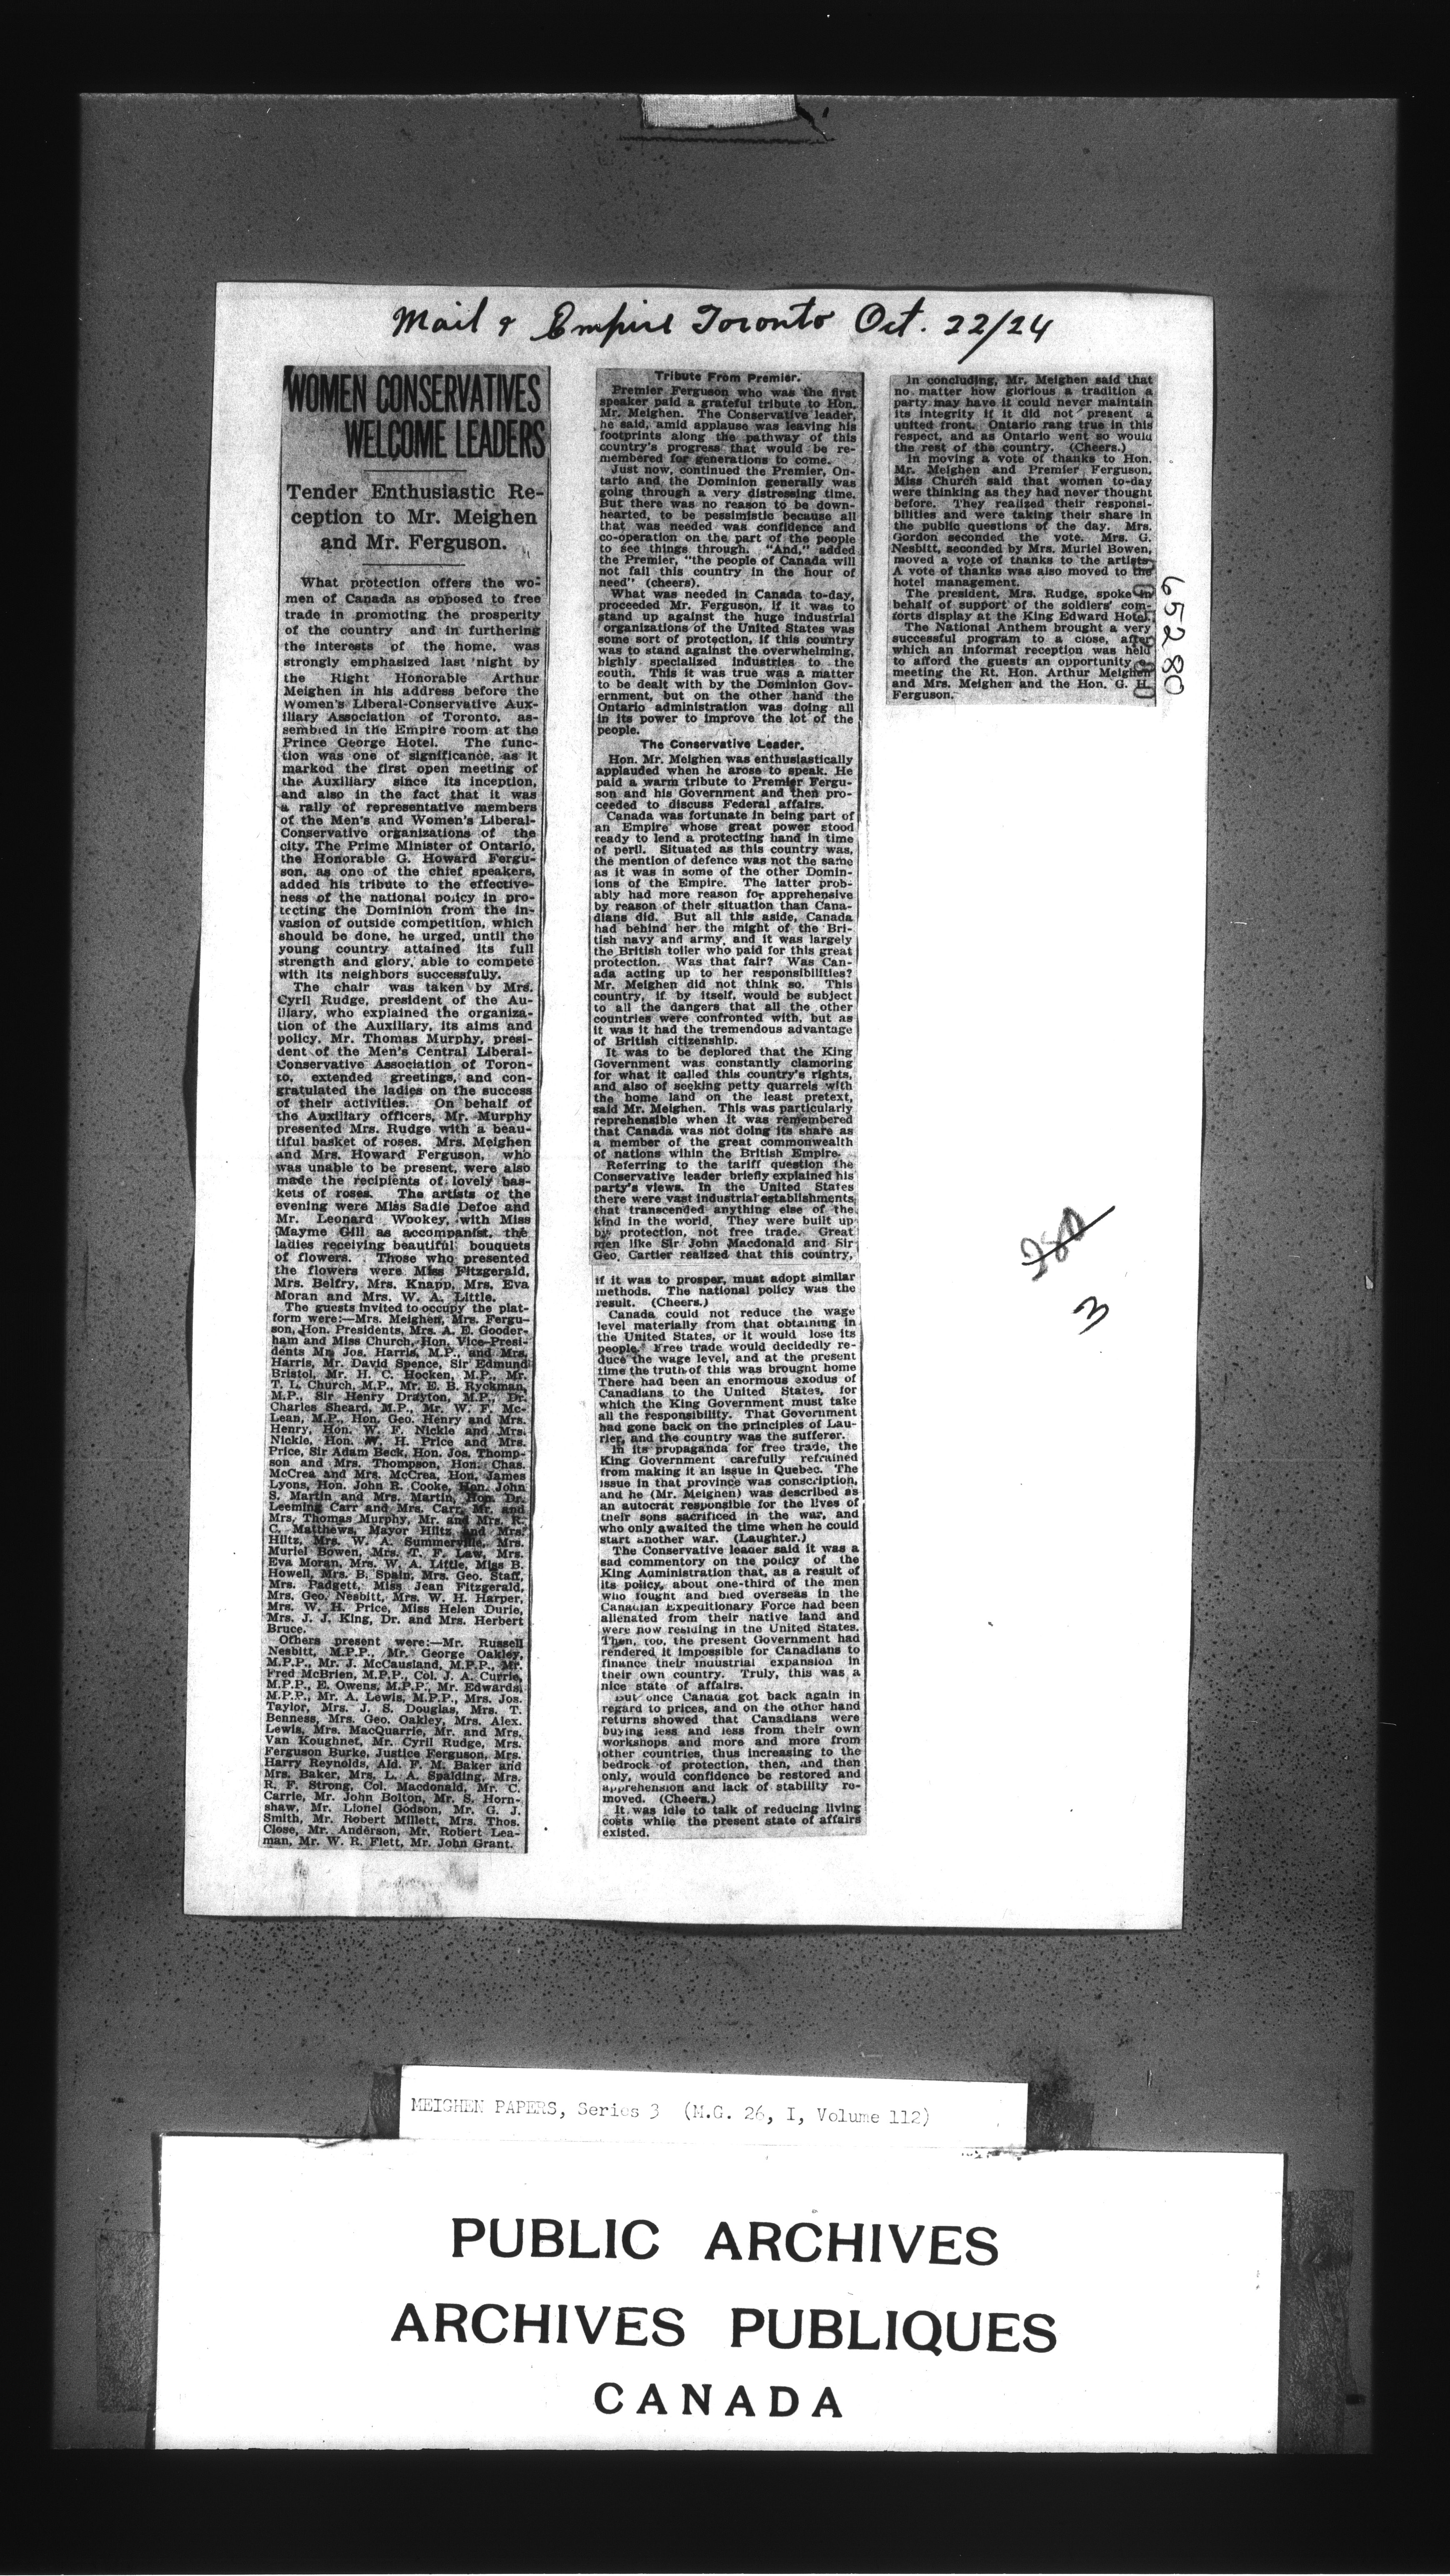 Mail & Empire Toronto Oct. 22/24
WOMEN CONSERVATIVES
WELCOME LEADERS
Tender Enthusiastic Re-
ception to Mr. Meighen
and Mr. Ferguson.
What protection offers the wo-
men of Canada as opposed to free
trade in promoting the prosperity
of the country and in furthering
the interests of the home, was
strongly emphasized last night by
the Right Honorable Arthur
Meighen in his address before the
Women's Liberal-Conservative Aux-
iliary Association of Toronto, as-
sembled in the Empire room at the
Prince George Hotel. The func-
tion was one of significance, as it
marked the first open meeting of
the Auxiliary since its inception,
and also in the fact that it was
a rally of representative members
of the Men's and Women's Liberal-
Conservative organizations of the
city. The Prime Minister of Ontario,
the Honorable G. Howard Fergu-
son, as one of the chief speakers,
added his tribute to the effective-
ness of the national policy in pro-
tecting the Dominion from the in-
vasion of outside competition, which
should be done, he urged, until the
young country attained its full
strength and glory, able to compete
with its neighbors successfully.
The chair was taken by Mrs.
Cyril Rudge, president of the Au-
iliary, who explained the organiza-
tion of the Auxiliary, its aims and
policy. Mr. Thomas Murphy, presi-
dent of the Men's Central Liberal-
Conservative Association of Toron-
to, extended greetings, and con-
gratulated the ladies on the success
of their activities. On behalf of
the Auxiliary officers, Mr. Murphy
presented Mrs. Rudge with a beau-
tiful basket of roses. Mrs. Meighen
and Mrs. Howard Ferguson, who
was unable to be present, were also
made the recipients of lovely bas-
kets of roses. The artists of the
evening were Miss Sadie Defoe and
Mr. Leonard Wookey, with Miss
Mayme Gill as accompanist, the
ladies receiving beautiful bouquets
of flowers. Those who presented
the flowers were Miss Fitzgerald,
Mrs. Belfry, Mrs. Knapp, Mrs. Eva
Moran and Mrs. W. A. Little.
The guests invited to occupy the plat-
form were:—Mrs. Meighen, Mrs. Fergu-
son, Hon. Presidents, Mrs. A. E. Gooder-
ham and Miss Church, Hon. Vice-Presi-
dents Mr. Jos. Harris, M.P., and Mrs.
Harris, Mr. David Spence, Sir Edmund
Bristol, Mr. H. C. Hocken, M.P., Mr.
T. L. Church, M.P., Mr. E. B. Ryckman,
M.P., Sir Henry Drayton, M.P., Dr.
Charles Sheard, M.P., Mr. W. F. Mc-
Lean, M.P., Hon. Geo. Henry and Mrs.
Henry, Hon. W. F. Nickle and Mrs.
Nickle, Hon. W. H. Price and Mrs.
Price, Sir Adam Beck, Hon. Jos. Thomp-
son and Mrs. Thompson, Hon. Chas.
McCrea and Mrs. McCrea, Hon. James
Lyons, Hon. John R. Cooke, Hon. John
S. Martin and Mrs. Martin, Hon. Dr.
Leeming Carr and Mrs. Carr, Mr. and
Mrs. Thomas Murphy, Mr. and Mrs. R.
C. Matthews, Mayor Hiltz and Mrs.
Hiltz, Mrs. W. A. Summerville, Mrs.
Muriel Bowen, Mrs. T. F. Law, Mrs.
Eva Moran, Mrs. W. A. Little, Miss B.
Howell, Mrs. B. Spain, Mrs. Geo. Staff,
Mrs. Padgett, Miss Jean Fitzgerald,
Mrs. Geo. Nesbitt, Mrs. W. H. Harper,
Mrs. W. H. Price, Miss Helen Durie,
Mrs. J. J. King, Dr. and Mrs. Herbert
Bruce.
Others present were:—Mr. Russell
Nesbitt, M.P.P., Mr. George Oakley,
M.P.P., Mr. J. McCausland, M.P.P., Mr.
Fred McBrien, M.P.P., Col. J. A. Currie,
M.P.P., E. Owens, M.P.P., Mr. Edwards,
M.P.P., Mr. A. Lewis, M.P.P., Mrs. Jos.
Taylor, Mrs. J. S. Douglas, Mrs. T.
Benness, Mrs. Geo. Oakley, Mrs. Alex.
Lewis, Mrs. MacQuarrie, Mr. and Mrs.
Van Koughnet, Mr. Cyril Rudge, Mrs.
Ferguson Burke, Justice Ferguson, Mrs.
Harry Reynolds, Ald. F. M. Baker and
Mrs. Baker, Mrs. L. A. Spalding, Mrs.
R. F. Strong, Col. Macdonald, Mr. C.
Carrie, Mr. John Bolton, Mr. S. Horn-
shaw, Mr. Lionel Godson, Mr. G. J.
Smith, Mr. Robert Millett, Mrs. Thos.
Close, Mr. Anderson, Mr. Robert Lea-
man, Mr. W. R. Flett, Mr. John Grant.
Tribute From Premier.
Premier Ferguson who was the first
speaker paid a grateful tribute to Hon.
Mr. Meighen. The Conservative leader,
he said, amid applause was leaving his
footprints along the pathway of this
country's progress that would be re-
membered for generations to come.
Just now, continued the Premier, On-
tario and the Dominion generally was
going through a very distressing time.
But there was no reason to be down-
hearted, to be pessimistic because all
that was needed was confidence and
co-operation on the part of the people
to see things through. "And," added
the Premier, "the people of Canada will
not fail this country in the hour of
need" (cheers).
What was needed in Canada to-day,
proceeded Mr. Ferguson, if it was to
stand up against the huge industrial
organizations of the United States was
some sort of protection, if this country
was to stand against the overwhelming,
highly specialized industries to the
south. This it was true was a matter
to be dealt with by the Dominion Gov-
ernment, but on the other hand the
Ontario administration was doing all
in its power to improve the lot of the
people.
The Conservative Leader.
Hon. Mr. Meighen was enthusiastically
applauded when he arose to speak. He
paid a warm tribute to Premier Fergu-
son and his Government and then pro-
ceeded to discuss Federal affairs.
Canada was fortunate in being part of
an Empire whose great power stood
ready to lend a protecting hand in time
of peril. Situated as this country was,
the mention of defence was not the same
as it was in some of the other Domin-
ions of the Empire. The latter prob-
ably had more reason for apprehensive
by reason of their situation than Cana-
dians did. But all this aside, Canada
had behind her the might of the Bri-
tish navy and army, and it was largely
the British toiler who paid for this great
protection. Was that fair? Was Can-
ada acting up to her responsibilities?
Mr. Meighen did not think so. This
country, if by itself, would be subject
to all the dangers that all the other
countries were confronted with, but as
it was it had the tremendous advantage
of British citizenship.
It was to be deplored that the King
Government was constantly clamoring
for what it called this country's rights,
and also of seeking petty quarrels with
the home land on the least pretext,
said Mr. Meighen. This was particularly
reprehensible when it was remembered
that Canada was not doing its share as
a member of the great commonwealth
of nations wihin the British Empire.
Referring to the tariff question the
Conservative leader briefly explained his
party's views. In the United States
there were vast industrial establishments,
that transcended anything else of the
kind in the world. They were built up
by protection, not free trade. Great
men like Sir John Macdonald and Sir
Geo. Cartier realized that this country,
if it was to prosper, must adopt similar
methods. The national policy was the
result. (Cheers.)
Canada could not reduce the wage
level materially from that obtaining in
the United States, or it would lose its
people. Free trade would decidedly re-
duce the wage level, and at the present
time the truth of this was brought home
There had been an enormous exodus of
Canadians to the United States, for
which the King Government must take
all the responsibility. That Government
had gone back on the principles of Lau-
rier, and the country was the sufferer.
In its propaganda for free trade, the
King Government carefully refrained
from making it an issue in Quebec. The
issue in that province was conscription,
and he (Mr. Meighen) was described as
an autocrat responsible for the lives of
their sons sacrificed in the war, and
who only awaited the time when he could
start another war. (Laughter.)
The Conservative leader said it was a
sad commentary on the policy of the
King Administration that, as a result of
its policy, about one-third of the men
who fought and bled overseas in the
Canadian Expeditionary Force had been
alienated from their native land and
were now residing in the United States.
Then, too, the present Government had
rendered it impossible for Canadians to
finance their industrial expansion in
their own country. Truly, this was a
nice state of affairs.
But once Canada got back again in
regard to prices, and on the other hand
returns showed that Canadians were
buying less and less from their own
workshops and more and more from
other countries, thus increasing to the
bedrock of protection, then, and then
only, would confidence be restored and
apprehension and lack of stability re-
moved. (Cheers.)
It was idle to talk of reducing living
costs while the present state of affairs
existed.
In concluding, Mr. Meighen said that
no matter how glorious a tradition a
party may have it could never maintain
its integrity if it did not present a
united front. Ontario rang true in this
respect, and as Ontario went so would
the rest of the country. (Cheers.)
In moving a vote of thanks to Hon.
Mr. Meighen and Premier Ferguson,
Miss Church said that women to-day
were thinking as they had never thought
before. They realized their responsi-
bilities and were taking their share in
the public questions of the day. Mrs.
Gordon seconded the vote. Mrs. G.
Nesbitt, seconded by Mrs. Muriel Bowen,
moved a vote of thanks to the artists.
A vote of thanks was also moved to the
hotel management.
The president, Mrs. Rudge, spoke in
behalf of support of the soldiers' com-
forts display at the King Edward Hotel.
The National Anthem brought a very
successful program to a close, after
which an informal reception was held
to afford the guests an opportunity
meeting the Rt. Hon. Arthur Meighen
and Mrs. Meighen and the Hon. G. H.
Ferguson.
65280
280
3
MEIGHEN PAPERS, Series 3 (M.G. 26, I, Volume 112)
PUBLIC ARCHIVES
ARCHIVES PUBLIQUES
CANADA